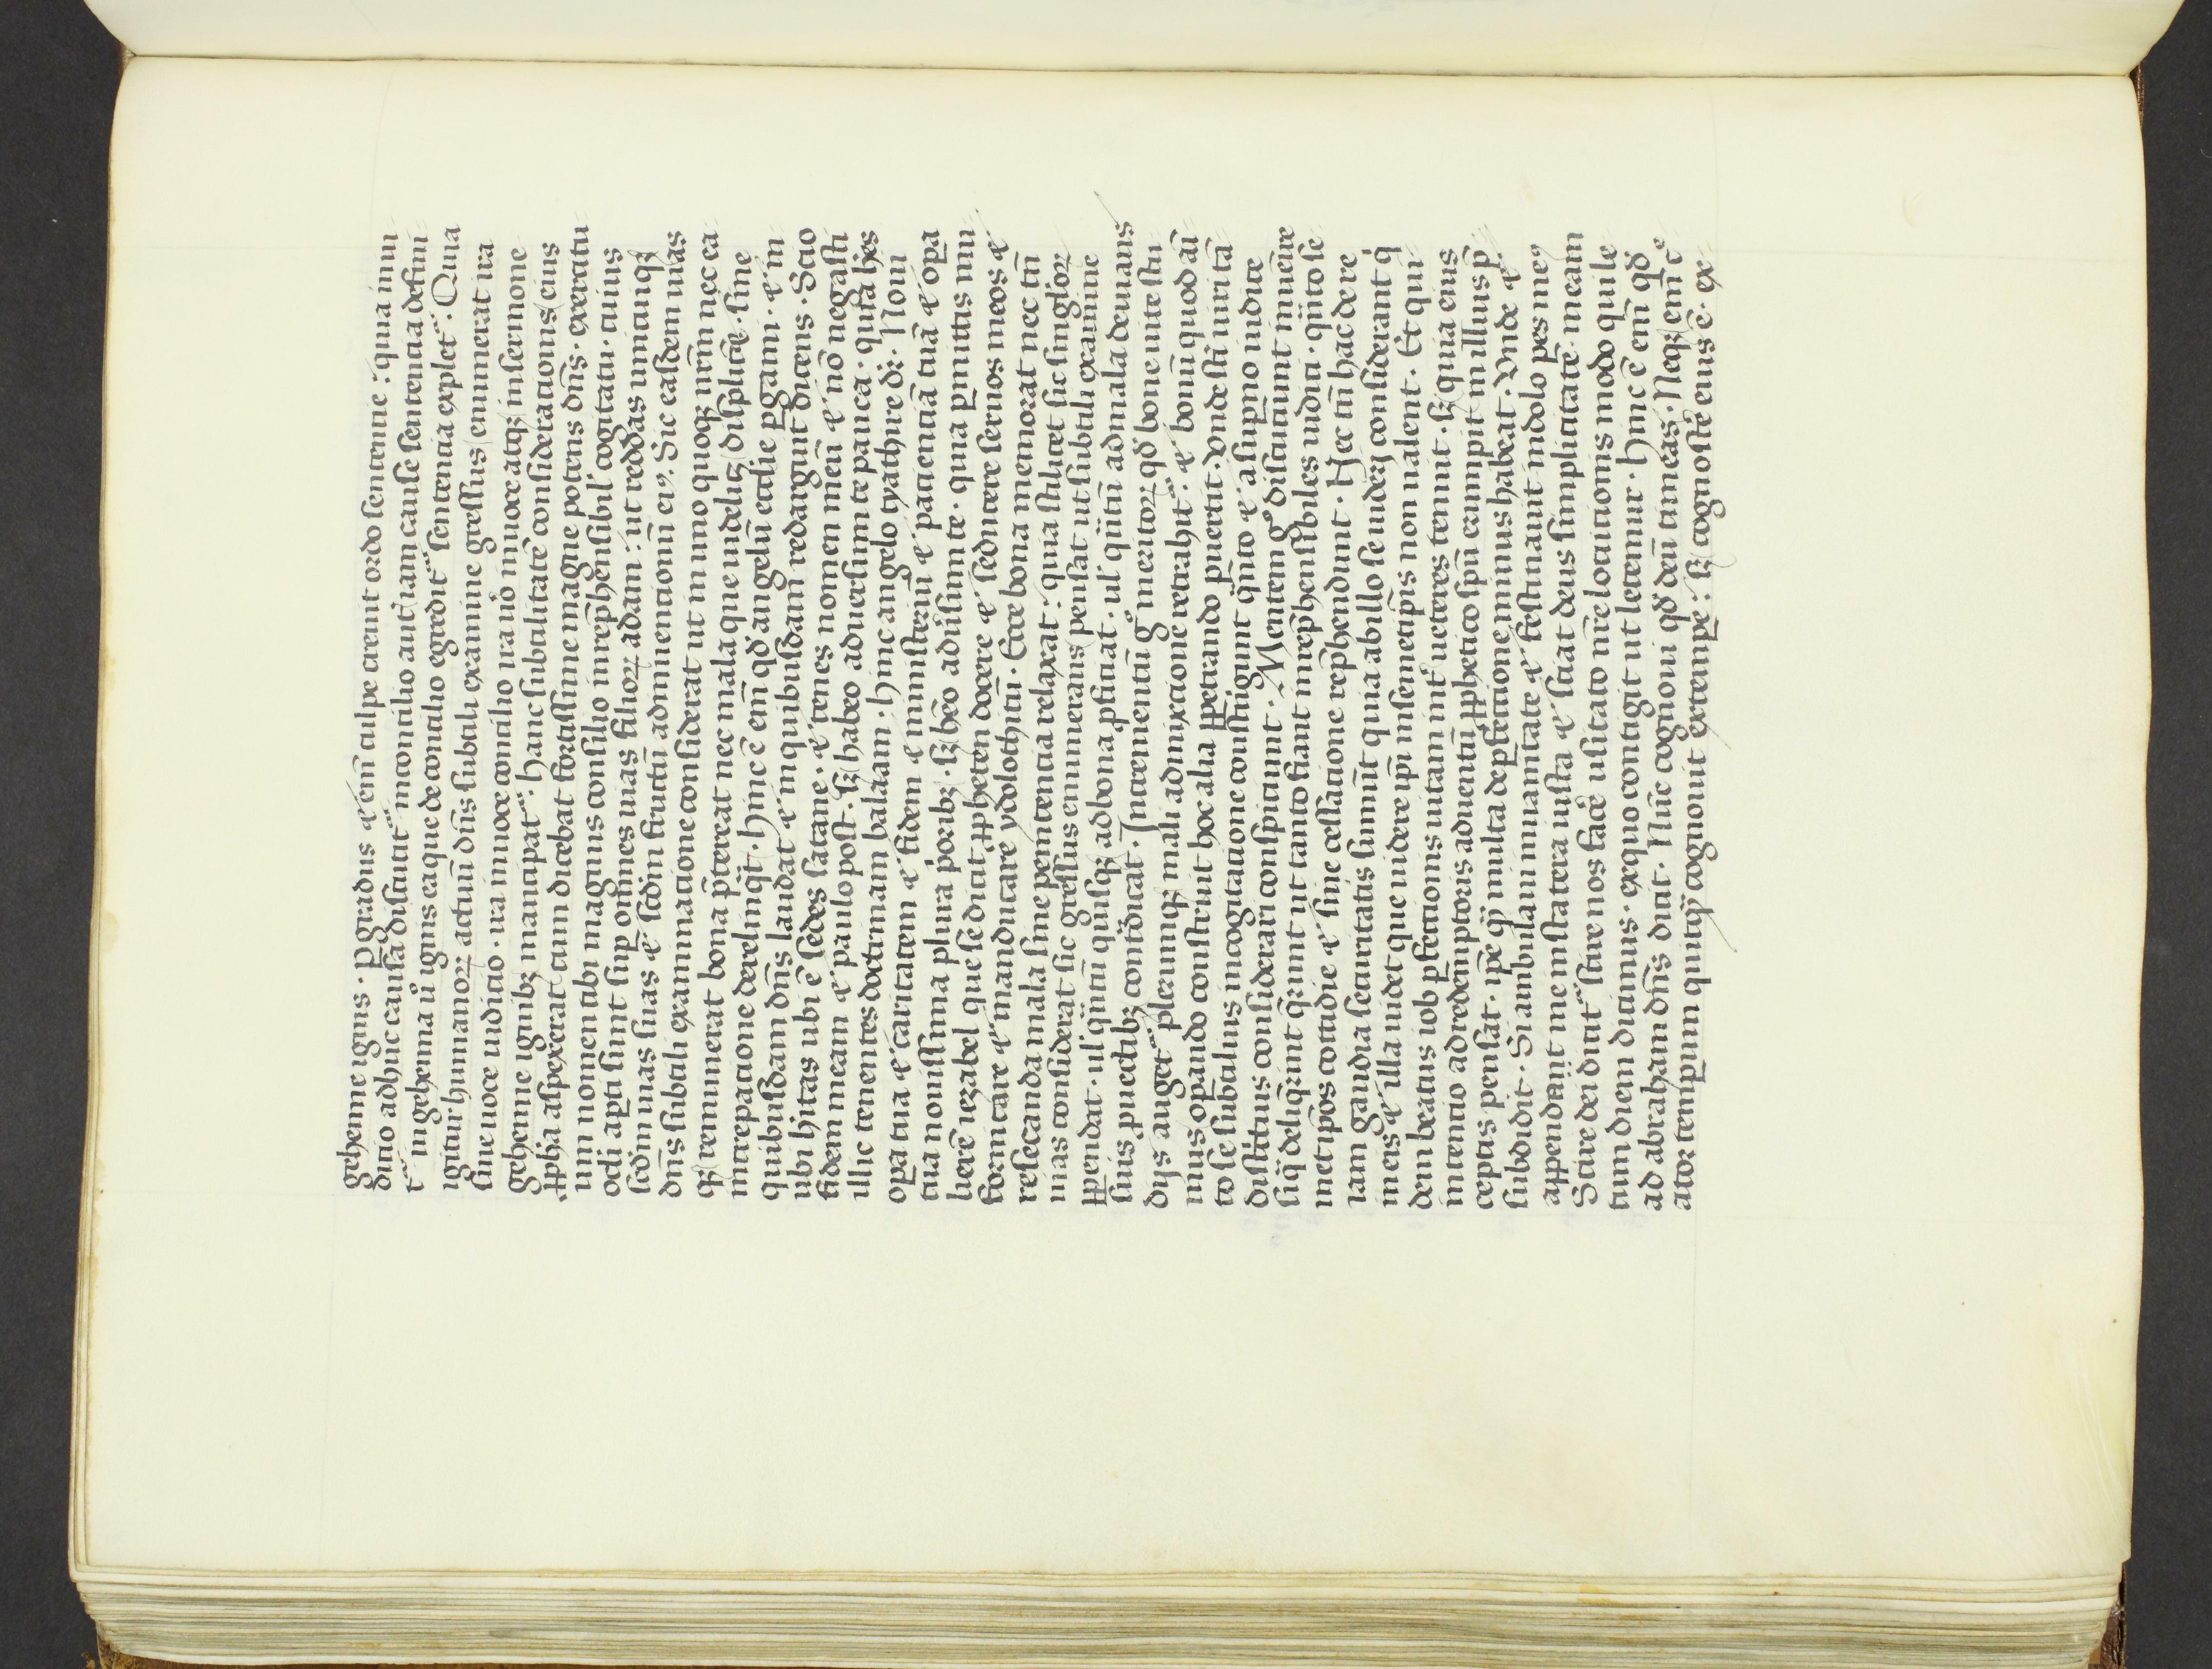 gehenne ignis · p̱ gradus em̄ culpe creuit ordo sentencie : quia in iu
dicio adhuc causa discutit᷑ in concilio aut̄ iam cause sentencia defini
t᷑ in gehenna u̾o ignis ea que de concilio egredit᷑ sentencia explet᷑ · Quia
igitur humanoꝝ actuū dn̄s subtili examine gressus enumerat ira
sine uoce iudicio · ira u̾o in uoce concilio ira u̾o in uoce atqꝫ in sermone
gehenne ignibꝫ mancipat᷑ · hanc subtilitatē consideracionis eius
ꝓpha aspexerat cum dicebat fortissime magne potens dn̄s · exercitu
um nomen tibi magnus consilio inrep̄hensibil̓ cogitatu · cuius
ocl̓i ap̱ti sunt sup̱ omnes uias filioꝝ adam : ut reddas unicuiqꝫ
scdm̄ uias suas ⁊ scdm̄ fructū adinuencionū eiꝰ. Sic easdem uias
dn̄s subtili examinacione considerat ut in uno quoqꝫ nr̄m nec ea
qꝫ remunerat bona p̄tereat nec mala que uidelicꝫ displicēt · sine
increpacione derelinq̇t · hinc ē em̄ qd̓ angelū ecclesie p̱gami · ⁊ in
quibusdam dn̄s laudat ⁊ in quibusdam redarguit dicens · Scio
ubi hitas ubi ē sedes satane · ⁊ tenes nomen meū ⁊ nō negasti
fidem meam ⁊ paulo post · sꝫ habeo aduersum te pauca · quia hēs
illic tenentes doctrinam balaam · hinc angelo tyathire d̓r : Noui
op̱a tua ⁊ caritatem ⁊ fidem ⁊ ministeriū ⁊ pacienciā tuā ⁊ op̱a
tua nouissima plura p̓oribꝫ · sꝫ hēo aduersum te · quia p̱mittis mu
lierē iezabel que se dicit ꝓpheten docere ⁊ seducere seruos meos ⁊
fornicare ⁊ manducare ydolothitū · Ecce bona memorat nec tn̄
resecanda mala sine penitencia relaxat : quia scilicet sic singl̓oꝝ
uias considerat sic gressus enumerans pensat ut subtili examine
ꝓpendat · ul̓ q̇ntū quisqꝫ ad bona ꝓficiat · ul̓ q̇ntū ad mala deuians
suis ꝓuectibꝫ contradicat · Incrementū gͦ meritoꝝ qd̓ bone uite stu
dijs auget᷑ plerumqꝫ mali admixtione retrahit᷑ : ⁊ bonū quod aīᷓ
mus op̱ando construit hoc alia ꝑpetrando ꝓuertit · Vnde sc̄i uiri tā
to se subtilius in cogitacione constrigunt q̇nto ⁊ a sup̱no iudice
districtius considerari conspiciunt · Mentem gͦ discuciunt inuenire
siq̇d deliq̄rint q̄runt ut tanto fiant inrep̄hensibiles iudici · q̇nto se
met ip̄os cotidie ⁊ sine cessacione rep̄hendunt · Nec tn̄ hac de re
iam gaudia securitatis sumūt quia ab illo se uiderj considerant q̓
in eis ⁊ illa uidet que uidere ip̄i in semetip̄is non ualent · Et qui
dem beatus iob p̱fectionis uitam int̓ ueteres tenuit · sꝫ quia eius
intencio ad redemptoris aduentū ꝓphetico sp̄u erumpit in illius p̄
ceptis pensat · ip̄e q̇ multa de p̱fectione minus habeat · Vnde ⁊
subdidit · Si ambulaui in uanitate ⁊ festinauit in dolo pes meꝰ
appendat me in statera iusta ⁊ sciat deus simplicitatē meam
Scire dei dicit᷑ scire nos facē usitato nr̄e locucionis modo qui le
tum diem dicimus · ex quo contigit ut letemur · hinc ē em̄ qd̓
ad abraham dn̄s dicit · Nūc cognoui qd̓ deū timeas · Neqꝫ em̄ cͦe
ator tempum quicq̇ cognouit ex temp̱e : sꝫ cognoscē eius ē · ex